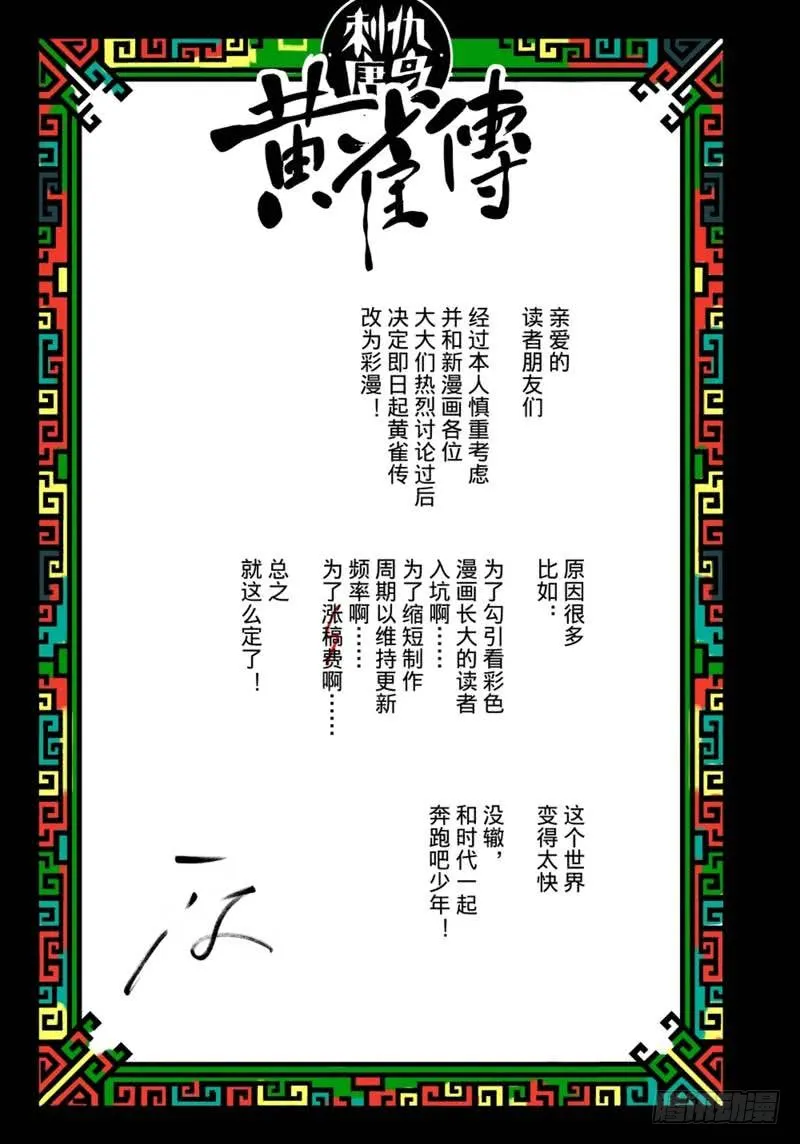 黄雀傳
亲爱的
读者朋友们
经过本人慎重考虑
并和新漫画各位
大大们热烈讨论过后
决定即日起黄雀传
改为彩漫！
原因很多
比如：
为了勾引看彩色
漫画长大的读者
入坑啊……
为了缩短制作
周期以维持更新
频率啊……
为了涨稿费啊……
总之
就这么定了！
这个世界
变得太快
没辙，
和时代一起
奔跑吧少年！
腾讯动漫